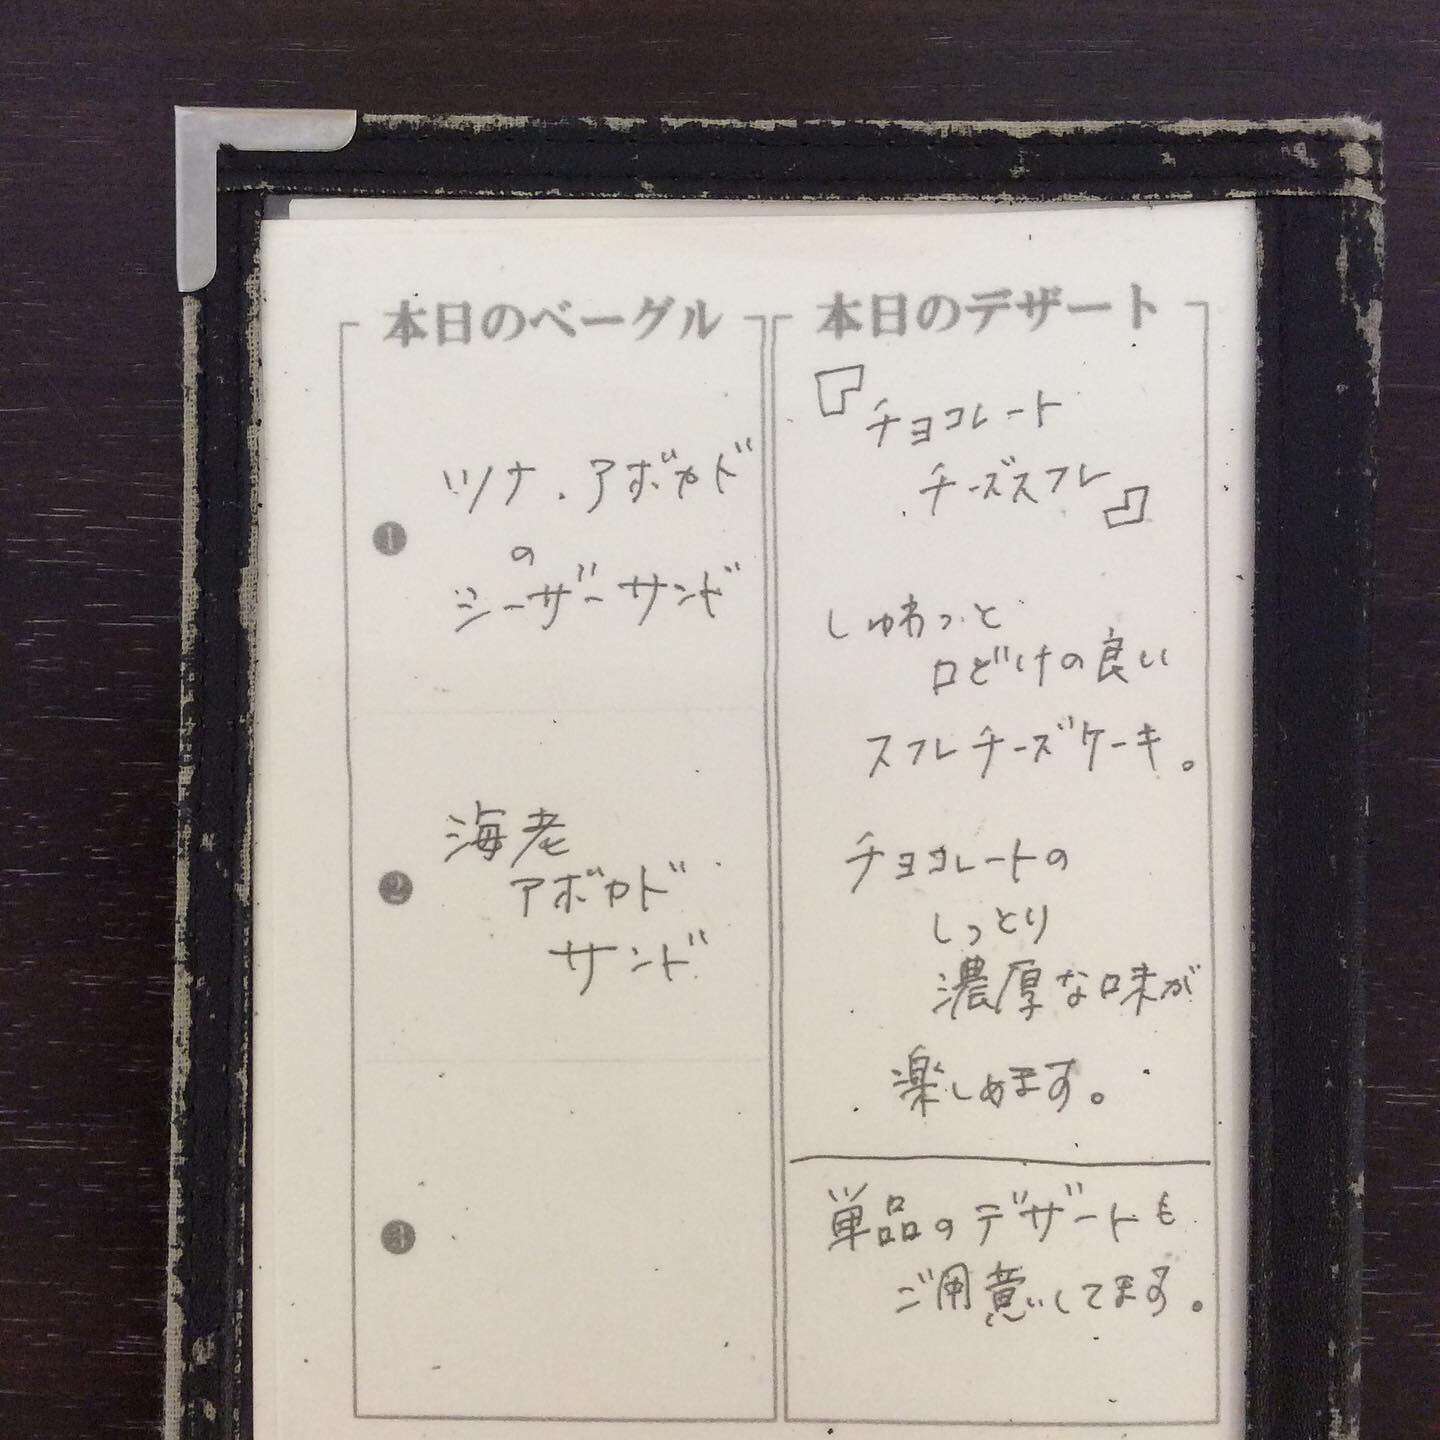 本日のベーグル
❶
ツナ.アボカド
の
シーザーサンド
❷
海老
アボカド
サンド
❸
本日のデザート
『チョコレート
チーズスフレ』
しゅわっと
口どけの良い
スフレチーズケーキ。
チョコレートの
しっとり
濃厚な味が
楽しめます。
単品のデザートも
ご用意してます。